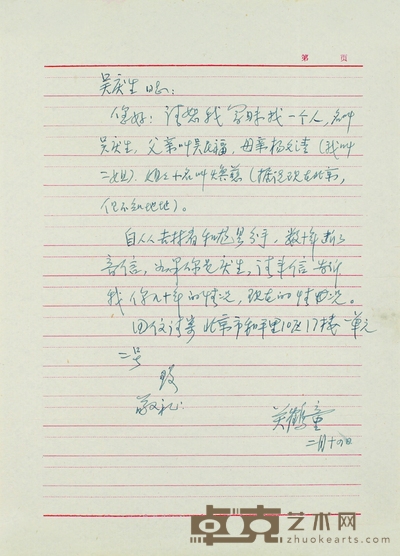 第 页
吴庆生同志:
您好:请恕我冒昧找一个人,名叫
吴庆生,父亲叫吴在福,母亲杨文清(我叫
二姐),姐姐小名叫焕蘂(据说现在北京,
但不知地址)。
自从 和您 分手,数十年断了
音信,如果你是庆生,请来信告诉
我你几十年的情况,现在的情况。
回信请寄北京市和平里10区17楼一单元
二号
致
敬礼:
吴鹤童
二月十 日
卓克艺术网
zhuokearts.com